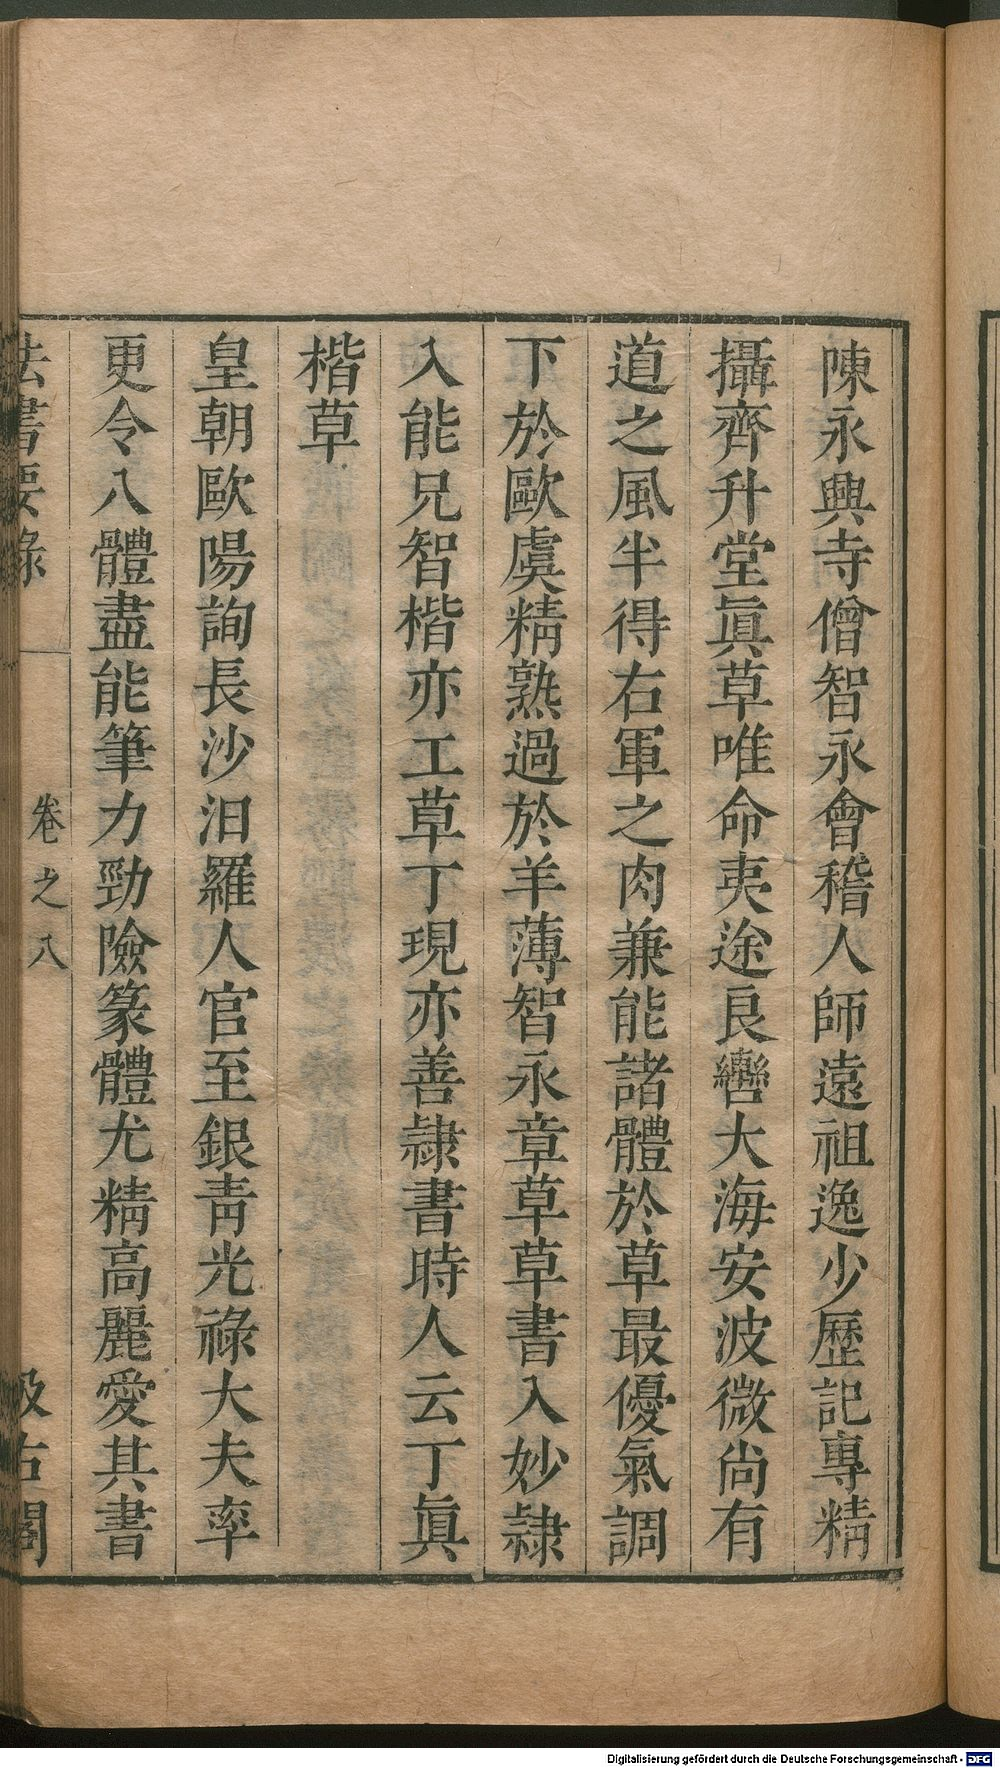 陳永興寺僧智永會稽人師遠祖逸少歷記專精
攝齊升堂眞草唯命夷途良轡大海安波微尚有
道之風半得右軍之肉兼能諸體於草最優氣調
下於歐虞精熟過於羊薄智永章草草書入妙隷
入能兄智楷亦工草丁現亦善隷書時人云丁眞
楷草
皇朝歐陽詢長沙汨羅人官至銀靑光祿大夫率
更令八體盡能筆力勁險篆體尤精高麗愛其書
法書要錄
卷之八
汲古閣
Digitalisierung gefördert durch die Deutsche Forschungsgemeinschaft - DFG